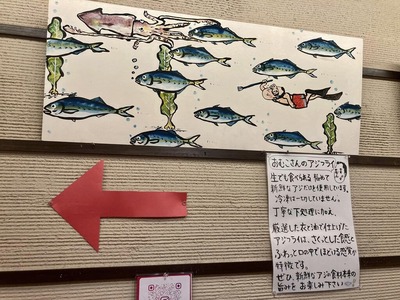 おむこさんのアジフライ
生でも食べられる極めて
新鮮なアジだけを使用しています。
冷凍は一切していません。
丁寧な下処理に加え、
厳選した衣と油で仕上げた
アジフライは、さくっとした食感と
ふわっと口の中でほどける感覚が
特徴です。
ぜひ、新鮮なアジの食材本来の
旨みをお楽しみ下さい